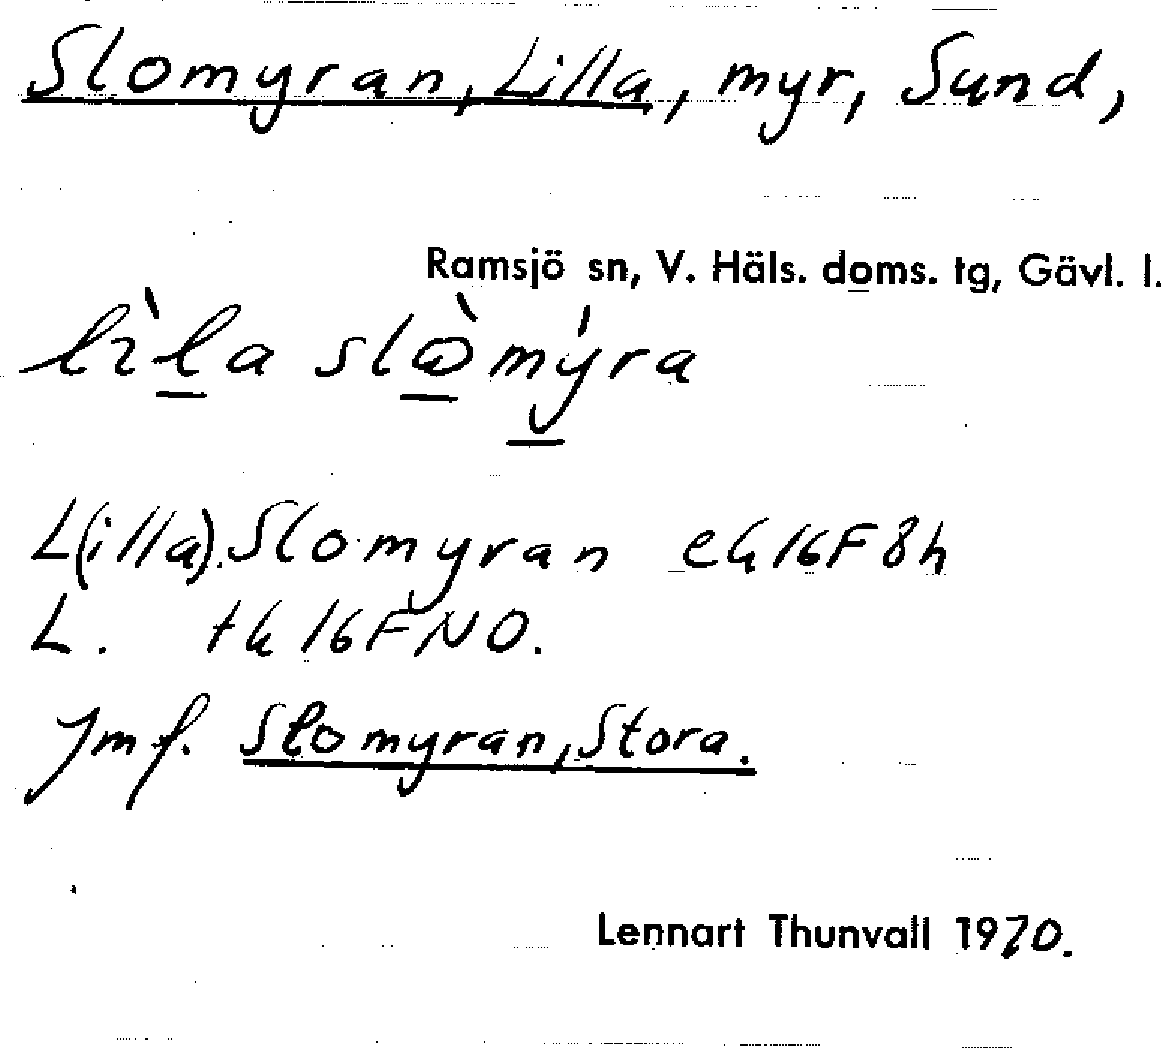 Slomyran, Lilla, myr, Sund,
Ramsjö sn, V. Häls. doms. tg, Gävl. l.
lìla slòmýra
L(illa). Slomyran ek 16F 8h
L. tk 16F NO.
Jmf. Slomyran, Stora.
Lennart Thunvall 1970.